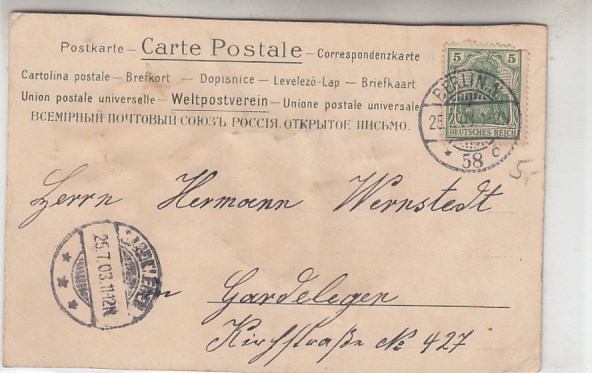 Postkarte — Carte Postale — Correspondenzkarte
Cartolina postale — Brefkort — Dopisnice — Levelező-Lap — Briefkaart
Union postale universelle — Weltpostverein — Unione postale universale
ВСЕМІРНЫЙ ПОЧТОВЫЙ СОЮЗЪ РОССІЯ. ОТКРЫТОЕ ПИСЬМО.
5 5
DEUTSCHES REICH
BERLIN.N.
25.
58 c
5,-
Herrn Hermann Wernstedt
in Gardelegen
Kirchstraße No 427
25.7.03.11-12N